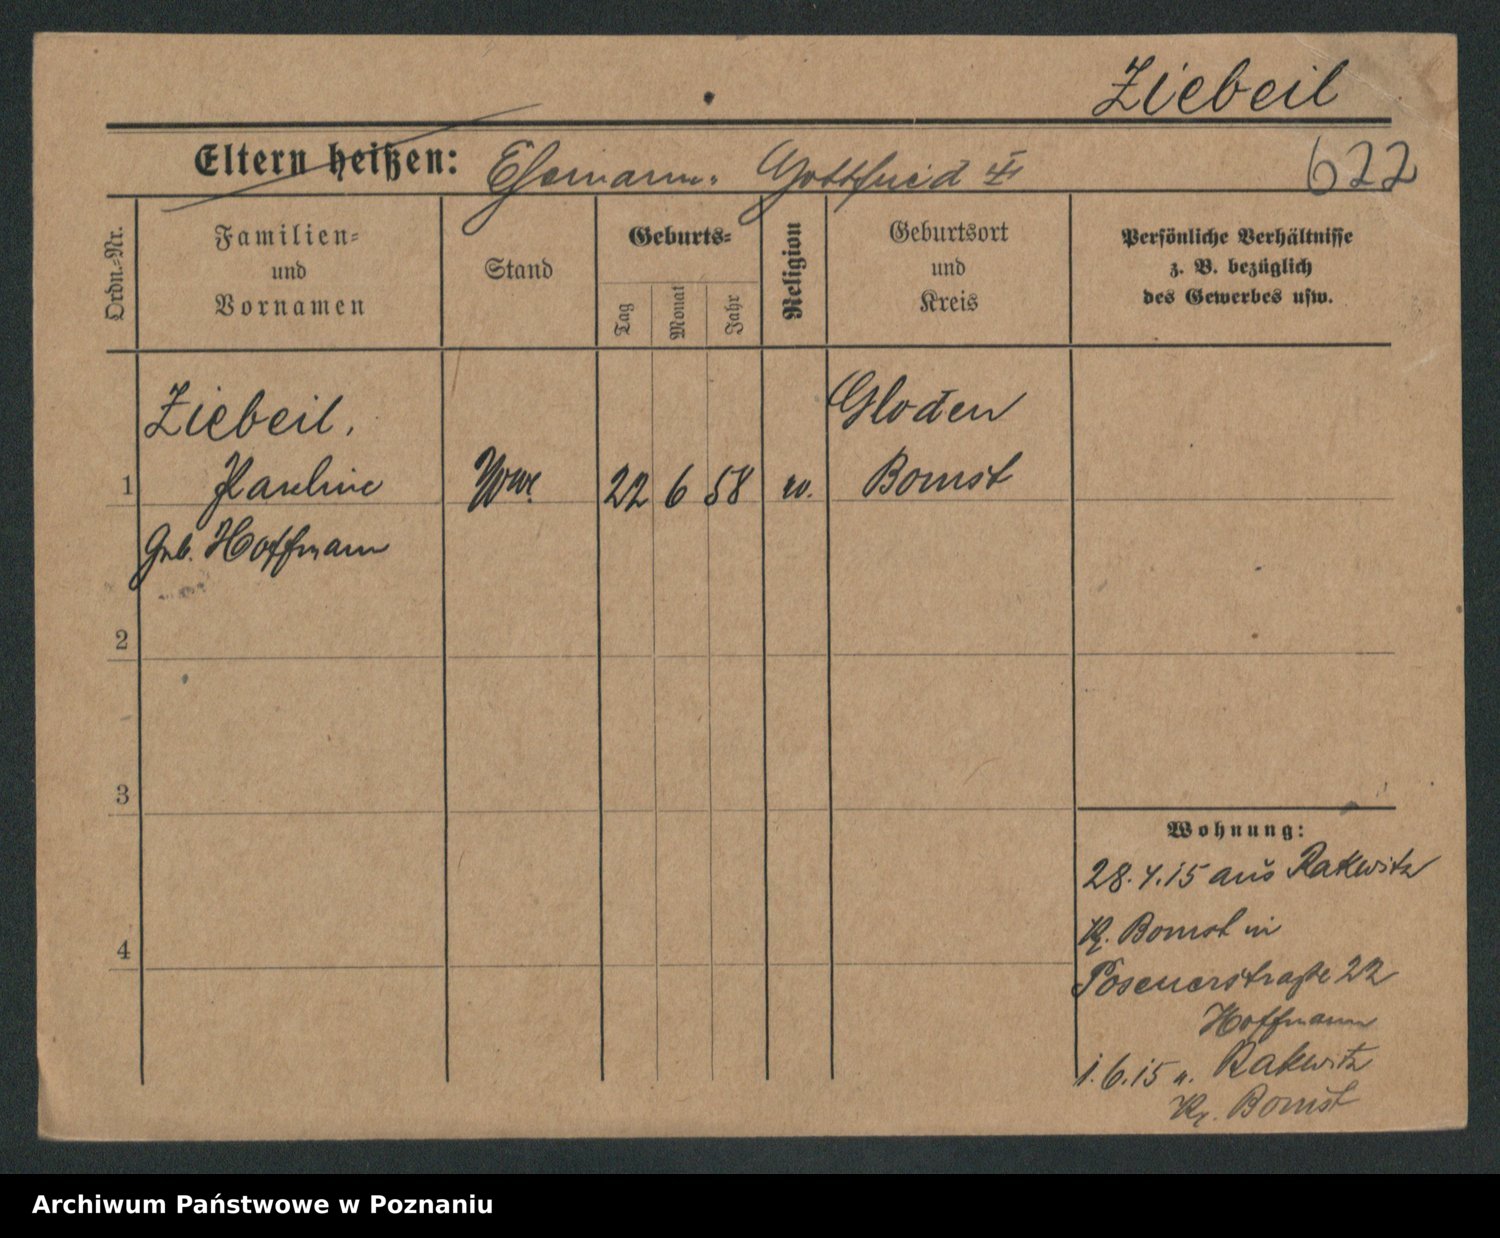 Ziebeil
Eltern heißen: Ehemann: Gottfried
622
Ordn.=Nr.
Familien=
und
Vornamen
Stand
Geburts=
Tag
Monat
Jahr
Religion
Geburtsort
und
Kreis
Persönliche Verhältnisse
z. B. bezüglich
des Gewerbes usw.
Ziebeil,
1 Pauline Wwe 22 6 58 ev.
Gloden
Bomst
Geb. Hoffmann
2
3
4
Wohnung:
28.4.15 aus Rakwitz
Kr. Bomst in
Posenerstraße 22
Hoffmann
1.6.15 n. Rakwitz
Kr. Bomst
Archiwum Państwowe w Poznaniu